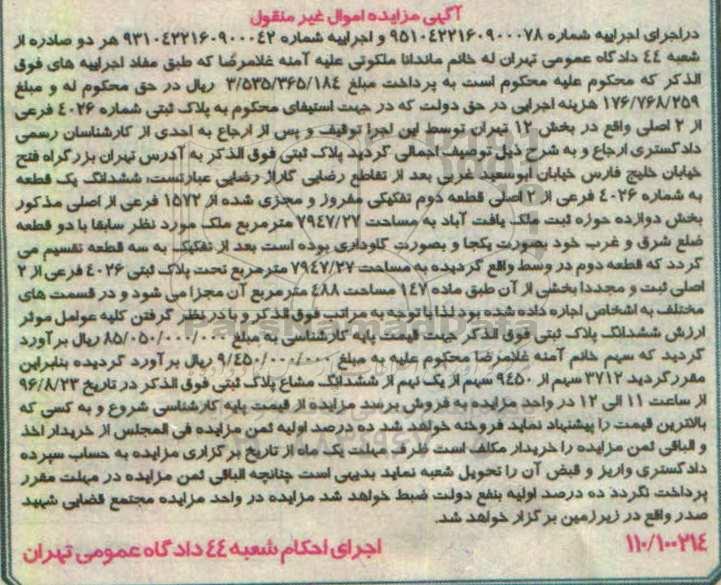 آگهی مزایده اموال غیر منقول
دراجرای اجراییه شماره ۹۵۱۰۴۲۲۱۶۰۹۰۰۰۷۸ و اجراییه شماره ۹۳۱۰۴۲۲۱۶۰۹۰۰۰۴۲ هر دو صادره از
شعبه ۴۴ دادگاه عمومی تهران له خانم ماندانا ملکوتی علیه آمنه غلامرضا که طبق مفاد اجراییه های فوق
الذکر که محکوم علیه محکوم است به پرداخت مبلغ ۳/۵۳۵/۳۶۵/۱۸۴ ریال در حق محکوم له و مبلغ
۱۷۶/۷۶۸/۲۵۹ هزینه اجرایی در حق دولت که در جهت استیفای محکوم به پلاک ثبتی شماره ۴۰۲۶ فرعی
از ۲ اصلی واقع در بخش ۱۲ تهران توسط این اجرا توقیف و پس از ارجاع به احدی از کارشناسان رسمی
دادگستری ارجاع و به شرح ذیل توصیف اجمالی گردید پلاک ثبتی فوق الذکر به آدرس تهران بزرگراه فتح
خیابان خلیج فارس خیابان ابوسعید غربی بعد از تقاطع رضایی گاراژ رضایی عبارتست: ششدانگ یک قطعه
به شماره ۴۰۲۶ فرعی از ۲ اصلی قطعه دوم تفکیکی مفروز و مجزی شده از ۱۵۷۲ فرعی از اصلی مذکور
بخش دوازده حوزه ثبت ملک یافت آباد به مساحت ۷۹۴۷/۲۷ مترمربع ملک مورد نظر سابقا با دو قطعه
ضلع شرق و غرب خود بصورت یکجا و بصورت گاوداری بوده است بعد از تفکیک به سه قطعه تقسیم می
گردد که قطعه دوم در وسط واقع گردیده به مساحت ۷۹۴۷/۲۷ مترمربع تحت پلاک ثبتی ۴۰۲۶ فرعی از ۲
اصلی ثبت و مجددا بخشی از آن طبق ماده ۱۴۷ مساحت ۴۸۸ مترمربع آن مجزا می شود و در قسمت های
مختلف به اشخاص اجاره داده شده بود لذا با توجه به مراتب فوق الذکر و با در نظر گرفتن کلیه عوامل موثر
ارزش ششدانگ پلاک ثبتی فوق الذکر جهت قیمت پایه کارشناسی به مبلغ ۸۵/۰۵۰/۰۰۰/۰۰۰ ریال برآورد
گردید که سهم خانم آمنه غلامرضا محکوم علیه به مبلغ ۹/۴۵۰/۰۰۰/۰۰۰ ریال برآورد گردیده بنابراین
مقرر گردید ۳۷۱۲ سهم از ۹۴۵۰ سهم از یک نهم از ششدانگ مشاع پلاک ثبتی فوق الذکر در تاریخ ۹۶/۸/۲۳
از ساعت ۱۱ الی ۱۲ در واحد مزایده به فروش برسد مزایده از قیمت پایه کارشناسی شروع و به کسی که
بالاترین قیمت را پیشنهاد نماید فروخته خواهد شد ده درصد اولیه ثمن مزایده فی المجلس از خریدار اخذ
و الباقی ثمن مزایده را خریدار مکلف است ظرف مهلت یک ماه از تاریخ برگزاری مزایده به حساب سپرده
دادگستری واریز و قبض آن را تحویل شعبه نماید بدیهی است چنانچه الباقی ثمن مزایده در مهلت مقرر
پرداخت نگردد ده درصد اولیه بنفع دولت ضبط خواهد شد مزایده در واحد مزایده مجتمع قضایی شهید
صدر واقع در زیرزمین برگزار خواهد شد.
۱۱۰/۱۰۰۲۱۴ اجرای احکام شعبه ۴۴ دادگاه عمومی تهران
ParsNamadData